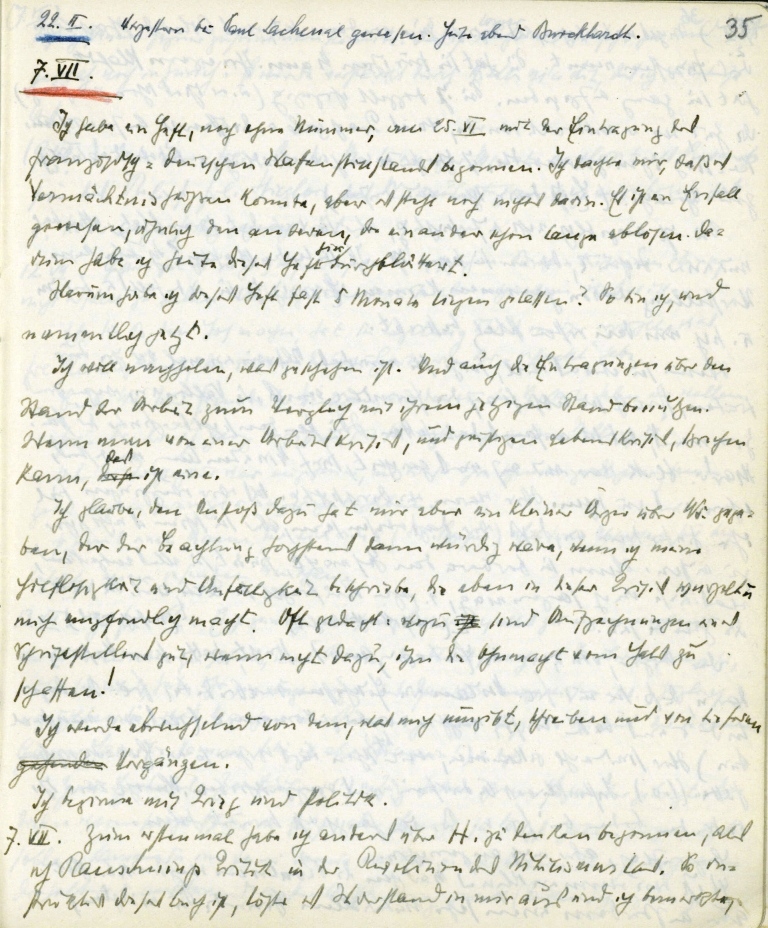 22. II. Vorgestern bei Paul Lachenal gewesen. Heute abend Burckhardt. 35
7. VII.
Ich habe ein Heft, noch ohne Nummer, am 25. VI mit der Eintragung des
französisch-deutschen Waffenstillstands begonnen. Ich dachte mir, daß es
Vermächtnis heißen könnte, aber es steht noch nichts darin. Es ist ein Einfall
gewesen, ähnlich den anderen, die einander schon lange ablösen. Da-
rum habe ich heute dieses Heft hier durchgeblättert.
Warum habe ich dieses Heft fast 5 Monate liegen gelassen? So bin ich, und
namentlich jetzt.
Ich will nachholen, was geschehen ist. Und auch die Eintragungen über den
Stand der Arbeit zum Vergleich mit ihrem jetzigen Stand benützen.
Wenn man von einer Arbeitskrisis, und geistigen Lebenskrisis, sprechen
kann, das ist eine.
Ich glaube, den Anstoß dazu hat mir aber ein kleiner Ärger über gege-
ben, der der Beachtung höchstens dann würdig wäre, wenn ich meine
Hilflosigkeit und beschriebe, die eben in dieser Krisis wurzelt u
mich empfindlich macht. Oft gedacht: wozu sind Aufzeichnungen eines
Schriftstellers gut, wenn nicht dazu, ihm die Ohnmacht vom Hals zu
schaffen!
Ich werde abwechselnd von dem, was mich umgibt, schreiben und von tieferen
Vorgängen.
Ich beginne mit Krieg und Politik.
7. VII. Zum erstenmal habe ich anders über H. zu denken begonnen, als
ich Rauschnings Kritik in der Revolution des Nihilismus las. So ein-
drücklich dieses Buch ist, löste es Widerstand in mir aus und ich